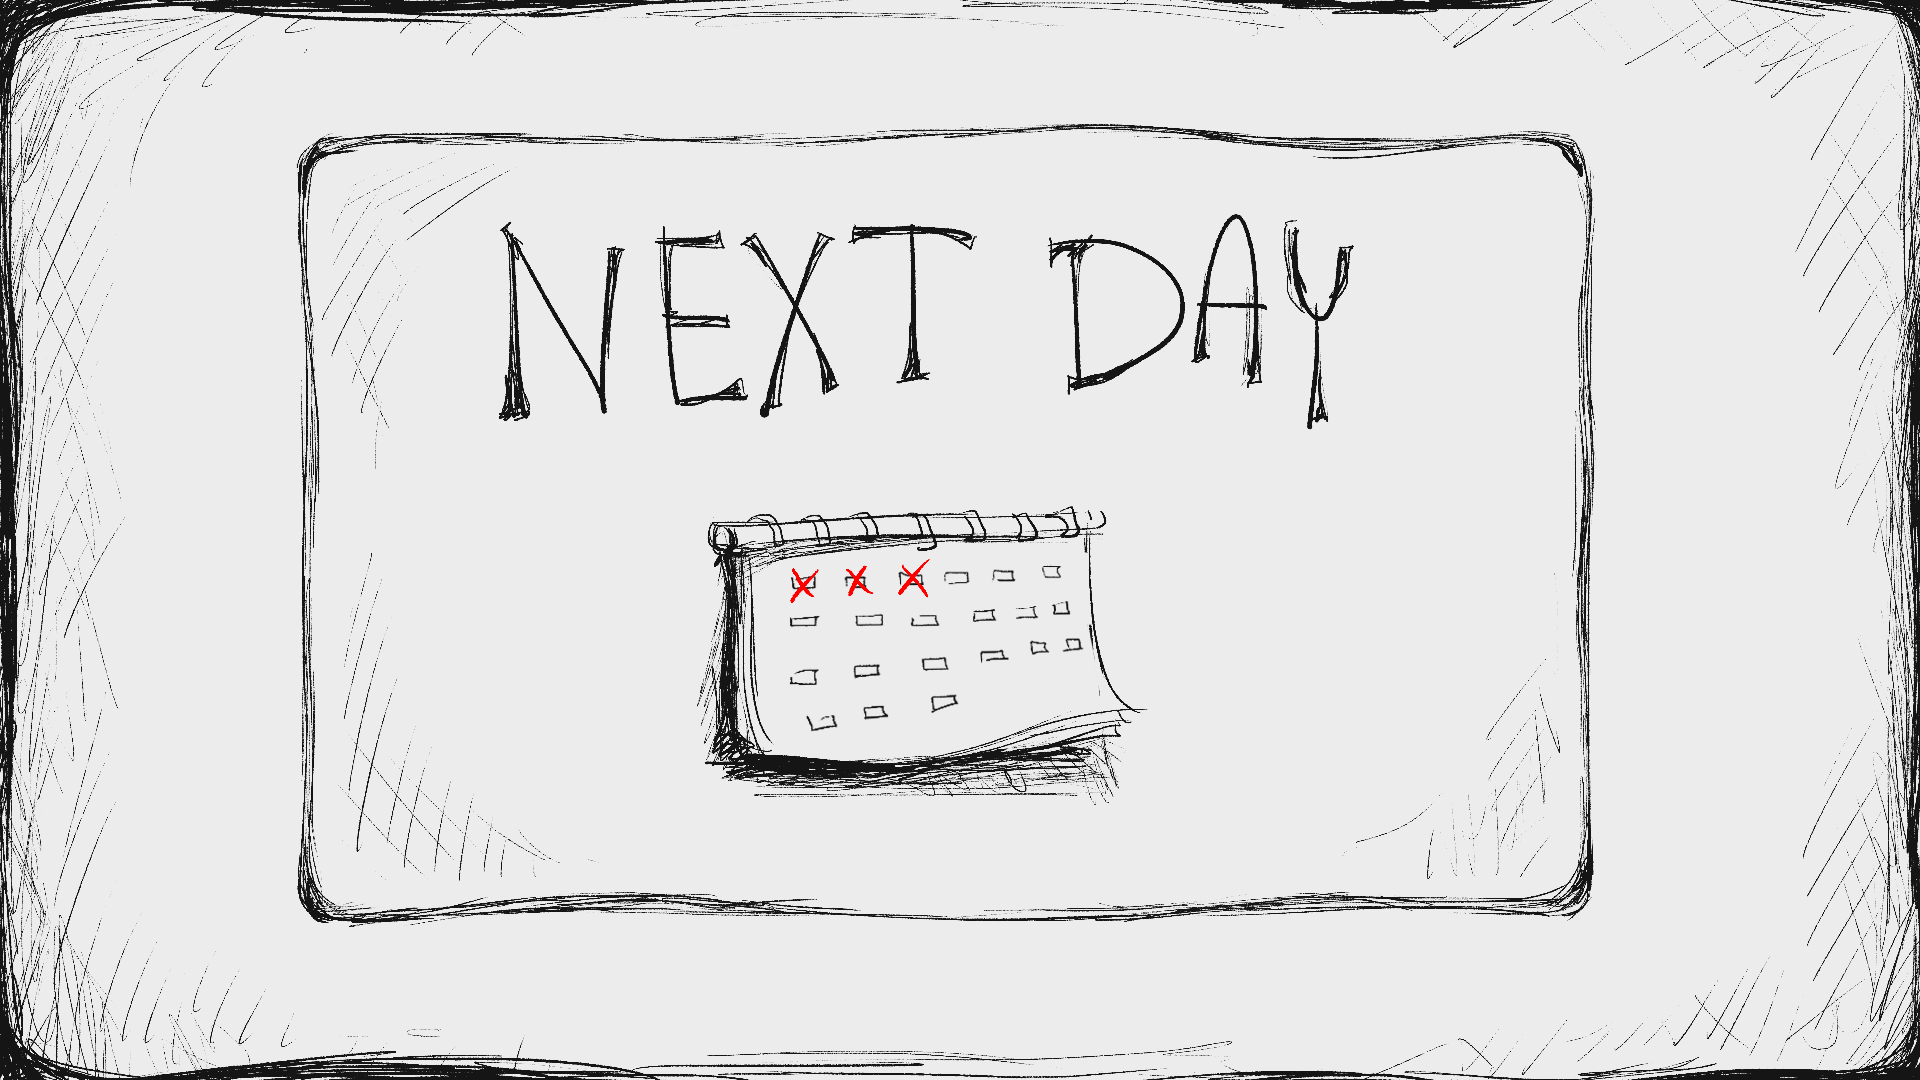 NEXT DAY